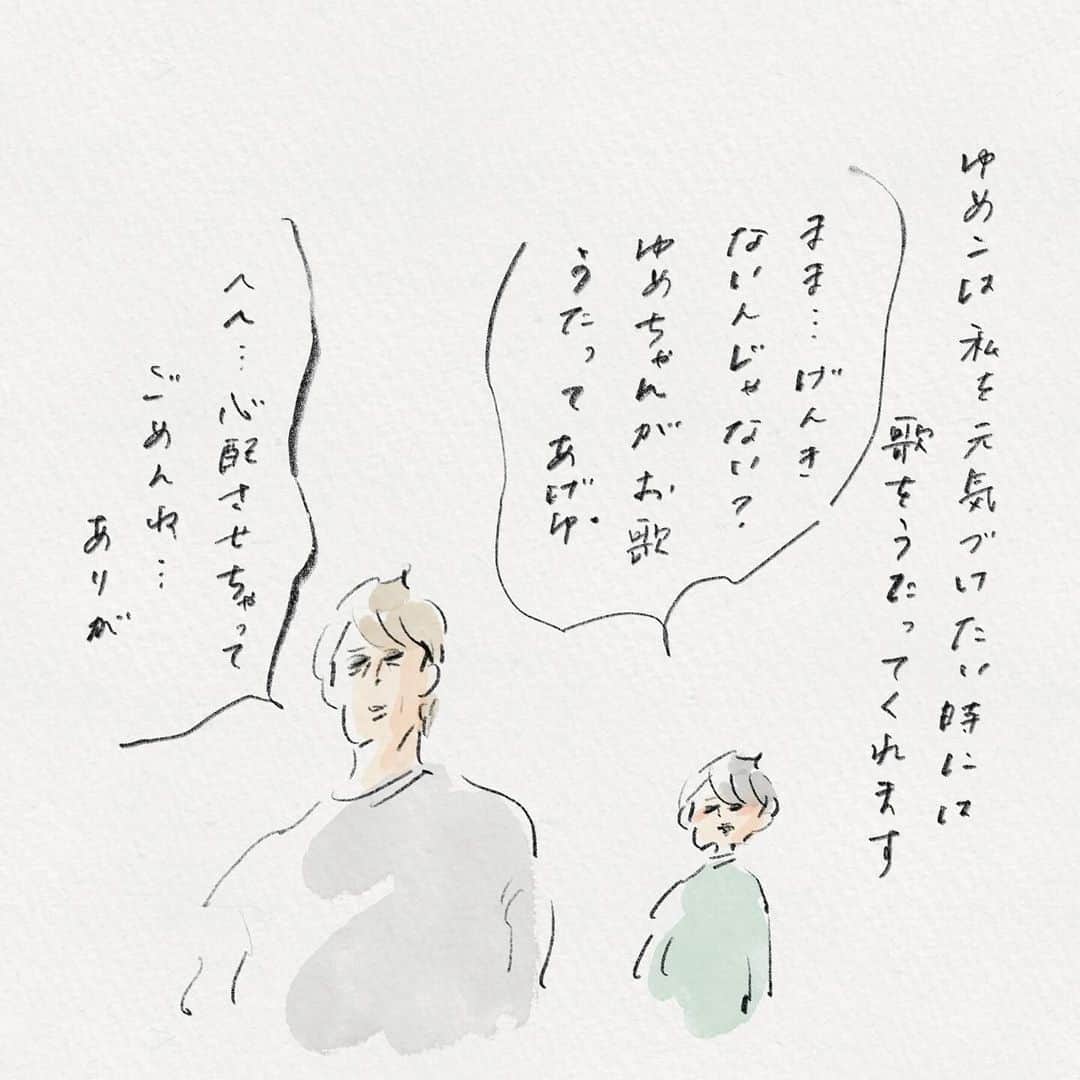 ゆめこは私を元気づけたい時には
歌をうたってくれます
まま…げんき
ないんじゃない?
ゆめちゃんがお歌
うたってあげゆ。
へへ…心配させちゃって
ごめんね…
ありが